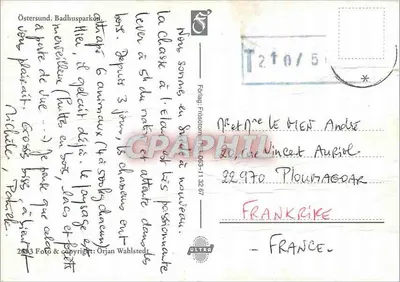 Östersund. Badhusparken
Nous sommes en Suède à nouveau.
La chasse à l'élan est très passionnante
lever à 5h du matin et attente dans les
bois. Depuis 3 jours, les chasseurs ont
attrapé 6 animaux (4 à 500kg chacun)
Hier il gelait déjà. Le paysage est
merveilleux (huttes en bois, lacs et forêts
à perte de vue...) Je pense que cela
vous plairait. Gros bises, à bientôt
Michèle,
2893 Foto & copyright: Örjan Wahlstedt
Förlag: Fritidstorno 063-11 32 67
ULTRA
T 210/5
Mr et Mme LE MEN André
20, rue Vincent Auriol
22970 PLOUMAGOAR
FRANKRIKE
- FRANCE -
CPAPHIL